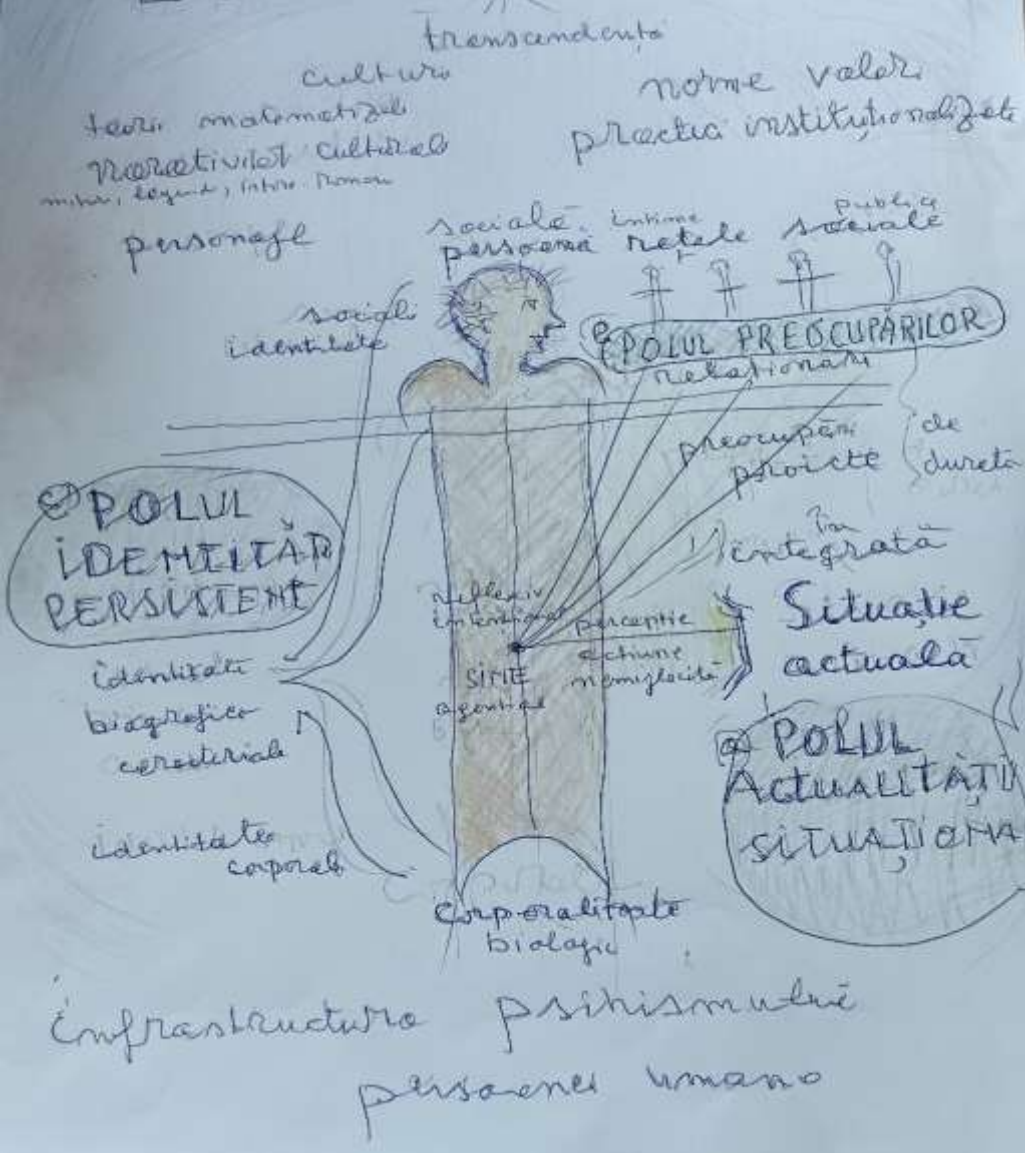 transcendență
cultura
norme valori
teorii matematizate
practici instituționalizate
narativitat culturale
personaje
socială
intime
publice
persoana
rețele
sociale
social
identitate
POLUL PREOCUPĂRILOR
relationari
preocupări
proicte
de
durată
POLUL
IDENTITĂȚI
PERSISTENT
integrată
în
Situație
actuală
reflexiv
intențional
perceptie
actiune
nemijlocită
SINE
agential
identitate
biografico
caracteriale
POLUL
ACTUALITĂȚI
SITUAȚIONA
identitate
corporale
corporalitate
biologic
infrastructura psihismului
persoanei umane